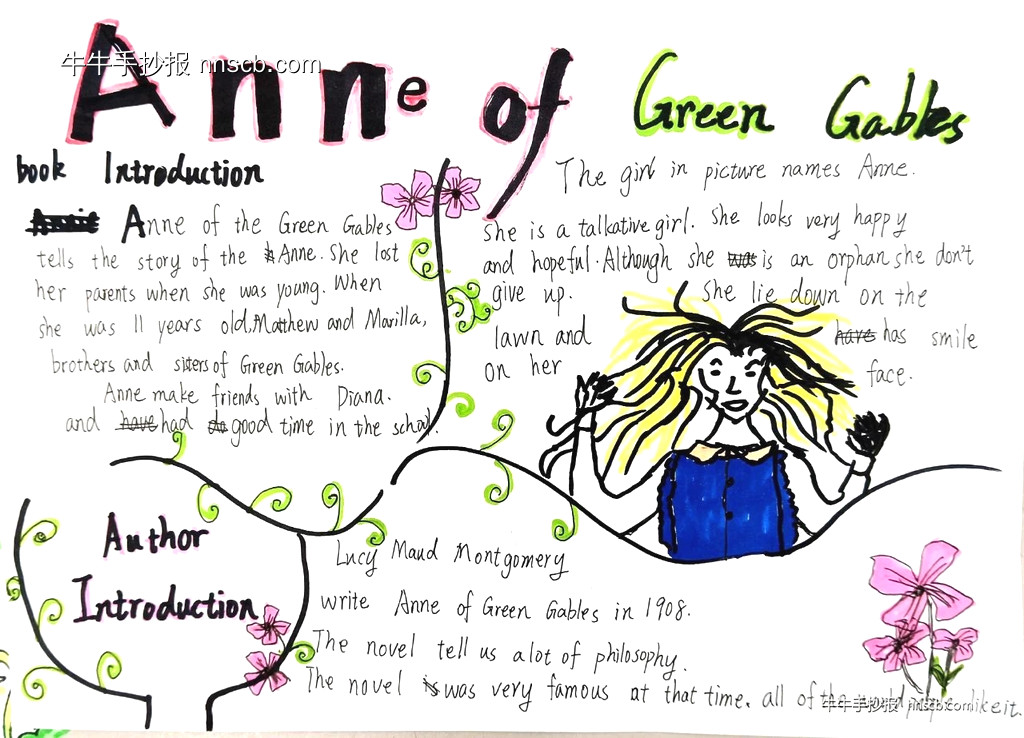 牛牛手抄报 nnscb.com
Anne of Green Gables
book Introduction
Anne of the Green Gables
tells the story of the Anne. She lost
her parents when she was young. When
she was 11 years old, Matthew and Marilla,
brothers and sisters of Green Gables.
Anne make friends with Diana.
and have had do good time in the school.
The girl in picture names Anne.
She is a talkative girl. She looks very happy
and hopeful. Although she was is an orphan she don't
give up. She lie down on the
lawn and have has smile
on her face.
Author
Introduction
Lucy Maud Montgomery
write Anne of Green Gables in 1908.
The novel tell us a lot of philosophy.
The novel is was very famous at that time. all of the like it.
牛牛手抄报 nnscb.com